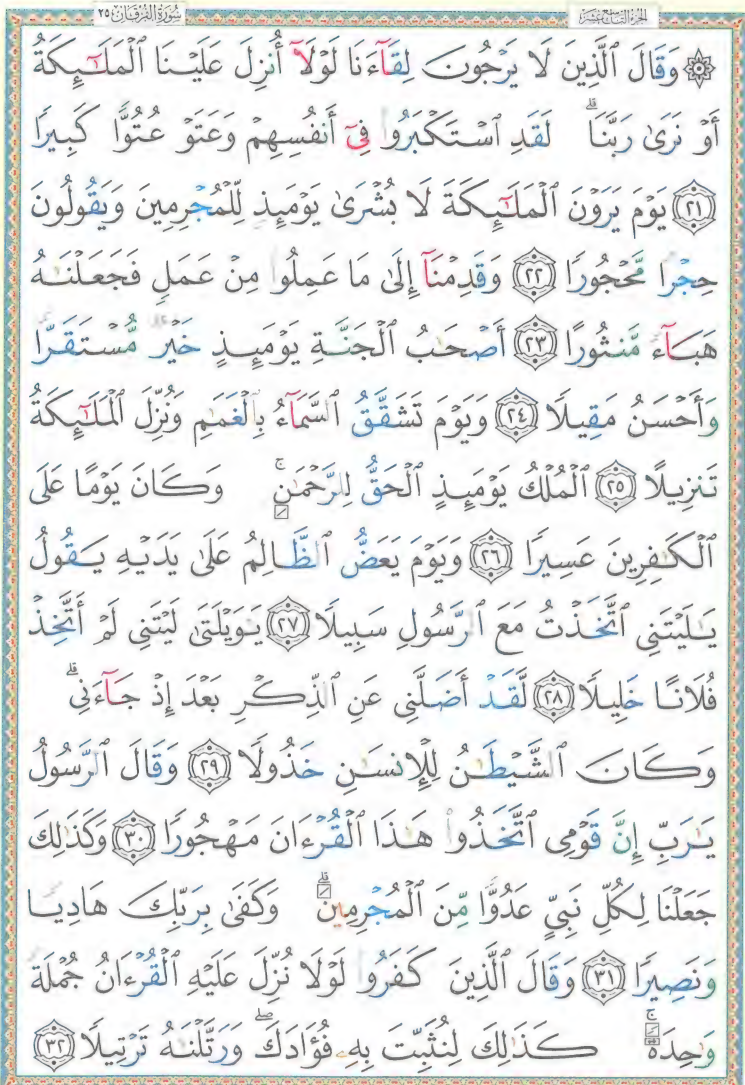 سُورَةُ الْفُرْقَانِ ٢٥
الجزء التاسع عشر
۞ وَقَالَ ٱلَّذِينَ لَا يَرْجُونَ لِقَآءَنَا لَوْلَآ أُنزِلَ عَلَيْنَا ٱلْمَلَـٰٓئِكَةُ
أَوْ نَرَىٰ رَبَّنَا ۗ لَقَدِ ٱسْتَكْبَرُوا۟ فِىٓ أَنفُسِهِمْ وَعَتَوْ عُتُوًّا كَبِيرًا
﴿٢١﴾ يَوْمَ يَرَوْنَ ٱلْمَلَـٰٓئِكَةَ لَا بُشْرَىٰ يَوْمَئِذٍ لِّلْمُجْرِمِينَ وَيَقُولُونَ
حِجْرًا مَّحْجُورًا ﴿٢٢﴾ وَقَدِمْنَآ إِلَىٰ مَا عَمِلُوا۟ مِنْ عَمَلٍ فَجَعَلْنَـٰهُ
هَبَآءً مَّنثُورًا ﴿٢٣﴾ أَصْحَـٰبُ ٱلْجَنَّةِ يَوْمَئِذٍ خَيْرٌ مُّسْتَقَرًّا
وَأَحْسَنُ مَقِيلًا ﴿٢٤﴾ وَيَوْمَ تَشَقَّقُ ٱلسَّمَآءُ بِٱلْغَمَـٰمِ وَنُزِّلَ ٱلْمَلَـٰٓئِكَةُ
تَنزِيلًا ﴿٢٥﴾ ٱلْمُلْكُ يَوْمَئِذٍ ٱلْحَقُّ لِلرَّحْمَـٰنِ ۚ وَكَانَ يَوْمًا عَلَى
ٱلْكَـٰفِرِينَ عَسِيرًا ﴿٢٦﴾ وَيَوْمَ يَعَضُّ ٱلظَّالِمُ عَلَىٰ يَدَيْهِ يَقُولُ
يَـٰلَيْتَنِى ٱتَّخَذْتُ مَعَ ٱلرَّسُولِ سَبِيلًا ﴿٢٧﴾ يَـٰوَيْلَتَىٰ لَيْتَنِى لَمْ أَتَّخِذْ
فُلَانًا خَلِيلًا ﴿٢٨﴾ لَّقَدْ أَضَلَّنِى عَنِ ٱلذِّكْرِ بَعْدَ إِذْ جَآءَنِى ۗ
وَكَانَ ٱلشَّيْطَـٰنُ لِلْإِنسَـٰنِ خَذُولًا ﴿٢٩﴾ وَقَالَ ٱلرَّسُولُ
يَـٰرَبِّ إِنَّ قَوْمِى ٱتَّخَذُوا۟ هَـٰذَا ٱلْقُرْءَانَ مَهْجُورًا ﴿٣٠﴾ وَكَذَٰلِكَ
جَعَلْنَا لِكُلِّ نَبِىٍّ عَدُوًّا مِّنَ ٱلْمُجْرِمِينَ ۗ وَكَفَىٰ بِرَبِّكَ هَادِيًا
وَنَصِيرًا ﴿٣١﴾ وَقَالَ ٱلَّذِينَ كَفَرُوا۟ لَوْلَا نُزِّلَ عَلَيْهِ ٱلْقُرْءَانُ جُمْلَةً
وَٰحِدَةً ۚ كَذَٰلِكَ لِنُثَبِّتَ بِهِۦ فُؤَادَكَ ۖ وَرَتَّلْنَـٰهُ تَرْتِيلًا ﴿٣٢﴾